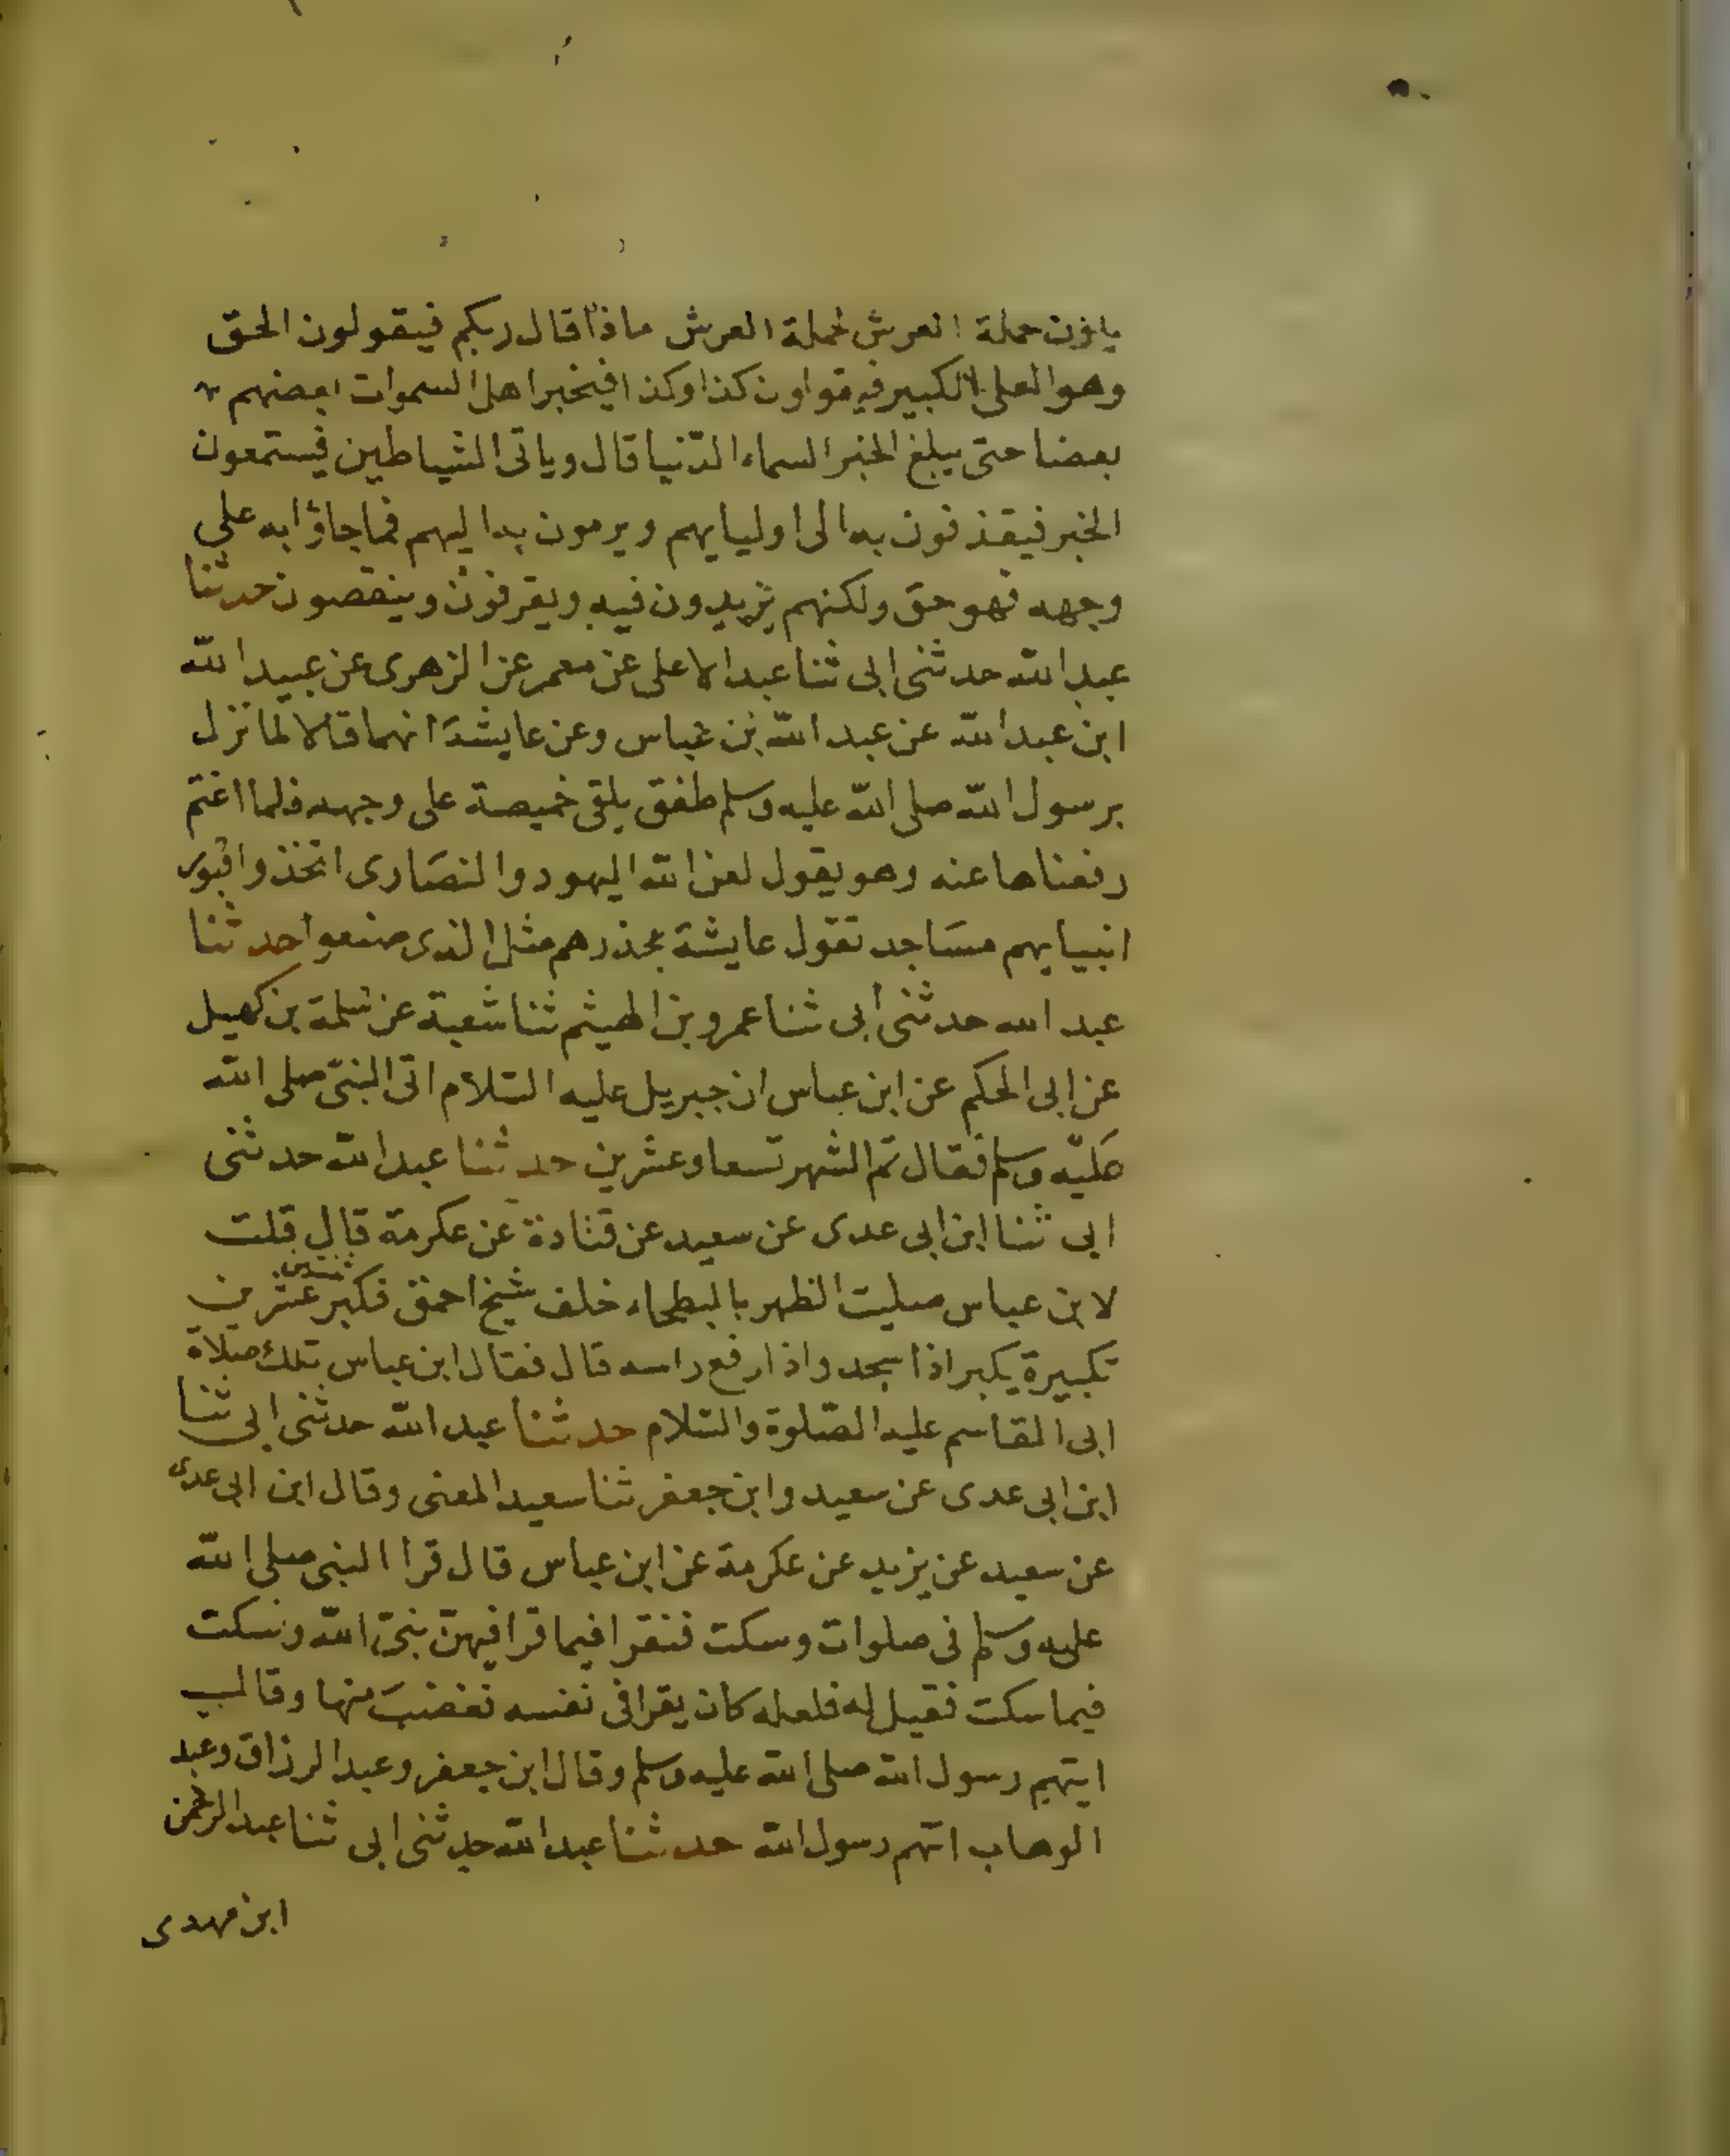 يلون حملة العرش لحملة العرش ماذا قال ربكم فيقولون الحق
وهو العلى الكبير فيقولون كذا وكذا فيخبر اهل السموات بعضهم
بعضا حتى يبلغ الخبر السماء الدّنيا قال وياتى الشياطين فيستمعون
الخبر فيقذفون به الى اوليايهم ويرمون به اليهم فما جاؤا به على
وجهه فهو حق ولكنهم يزيدون فيه ويقرفون وينقصون حدثنا
عبد الله حدثنى ابى ثنا عبد الاعلى عن معمر عن الزهرى عن عبيد الله
ابن عبد الله عن عبد الله بن عباس وعن عايشة انهما قالا لما نزل
برسول الله صلى الله عليه وسلم طفق يلقى خميصة على وجهه فلما اغتم
رفعناها عنه وهو يقول لعن الله اليهود والنصَارى اتخذوا قبور
انبيايهم مسَاجد تقول عايشة يحذرهم مثل الذى صنعوا حدثنا
عبد الله حدثنى أبى ثنا عمرو بن الهيثم ثنا شعبة عن سلمة بن كهيل
عن ابى الحكم عن ابن عباس ان جبريل عليه السّلام اتى النبىّ صلى الله
عَليه وسلم فقال تم الشهر تسعا وعشرين حدثنا عبد الله حدثنى
ابى ثنا ابن ابى عدى عن سعيد عن قتادة عن عكرمة قال قلت
لابن عباس صليت الظهر بالبطحاء خلف شيخ احمق فكبر ثنتين عشرين
تكبيرة يكبر اذا سجد واذا رفع راسه قال فقال ابن عباس تلك صلاة
ابى القاسم عليه الصّلوة والسّلام حدثنا عبد الله حدثنى ابى ثنا
ابن ابى عدى عن سعيد وابن جعفر ثنا سعيد المعنى وقال ابن ابى عدى
عن سعيد عن يزيد عن عكرمة عن ابن عباس قال قرا النبى صلى الله
عليه وسلم فى صلوات وسكت فنقرا فيما قرا فيهنّ نبىّ الله ونسكت
فيما سكت فقيل له فلعله كان يقرا فى نفسه فغضبَ منها وقال
ايتهم رسول الله صلى الله عليه وسلم وقال ابن جعفر وعبد الرزاق وعبد
الوهاب اتتهم رسول الله حدثنا عبد الله حدثنى ابى ثنا عبد الرحمن
ابن مهدى